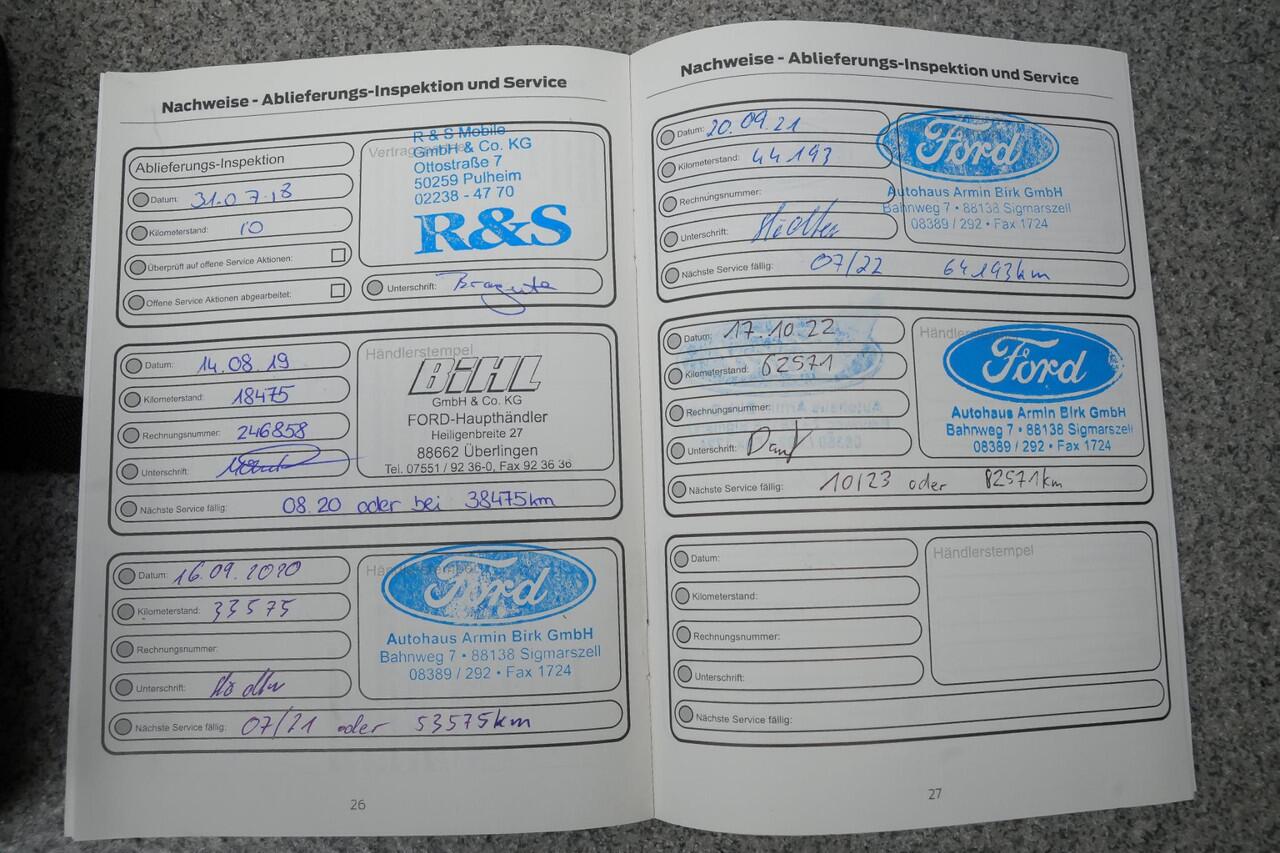 Nachweise - Ablieferungs-Inspektion und Service
Ablieferungs-Inspektion
Datum: 31.07.18
Kilometerstand: 10
Überprüft auf offene Service Aktionen:
Offene Service Aktionen abgearbeitet:
R & S Mobile
GmbH & Co. KG
Ottostraße 7
50259 Pulheim
02238 - 47 70
R&S
Unterschrift:
Datum: 14.08.19
Kilometerstand: 18475
Rechnungsnummer: 246858
Unterschrift:
Händlerstempel
BiHL
GmbH & Co. KG
FORD-Haupthändler
Heiligenbreite 27
88662 Überlingen
Tel. 07551 / 92 36-0, Fax 92 36 36
Nächste Service fällig: 08.20 oder bei 38475km
Datum: 16.09.2020
Kilometerstand: 33575
Rechnungsnummer:
Unterschrift:
Ford
Autohaus Armin Birk GmbH
Bahnweg 7 • 88138 Sigmarszell
08389 / 292 • Fax 1724
Nächste Service fällig: 07/21 oder 53575km
26
Nachweise - Ablieferungs-Inspektion und Service
Datum: 20.09.21
Kilometerstand: 44193
Rechnungsnummer:
Unterschrift:
Ford
Autohaus Armin Birk GmbH
Bahnweg 7 • 88138 Sigmarszell
08389 / 292 • Fax 1724
Nächste Service fällig: 07/22 64193km
Datum: 17.10.22
Kilometerstand: 62571
Rechnungsnummer:
Unterschrift:
Ford
Autohaus Armin Birk GmbH
Bahnweg 7 • 88138 Sigmarszell
08389 / 292 • Fax 1724
Nächste Service fällig: 10/23 oder 82571km
Datum:
Kilometerstand:
Rechnungsnummer:
Unterschrift:
Händlerstempel
Nächste Service fällig:
27